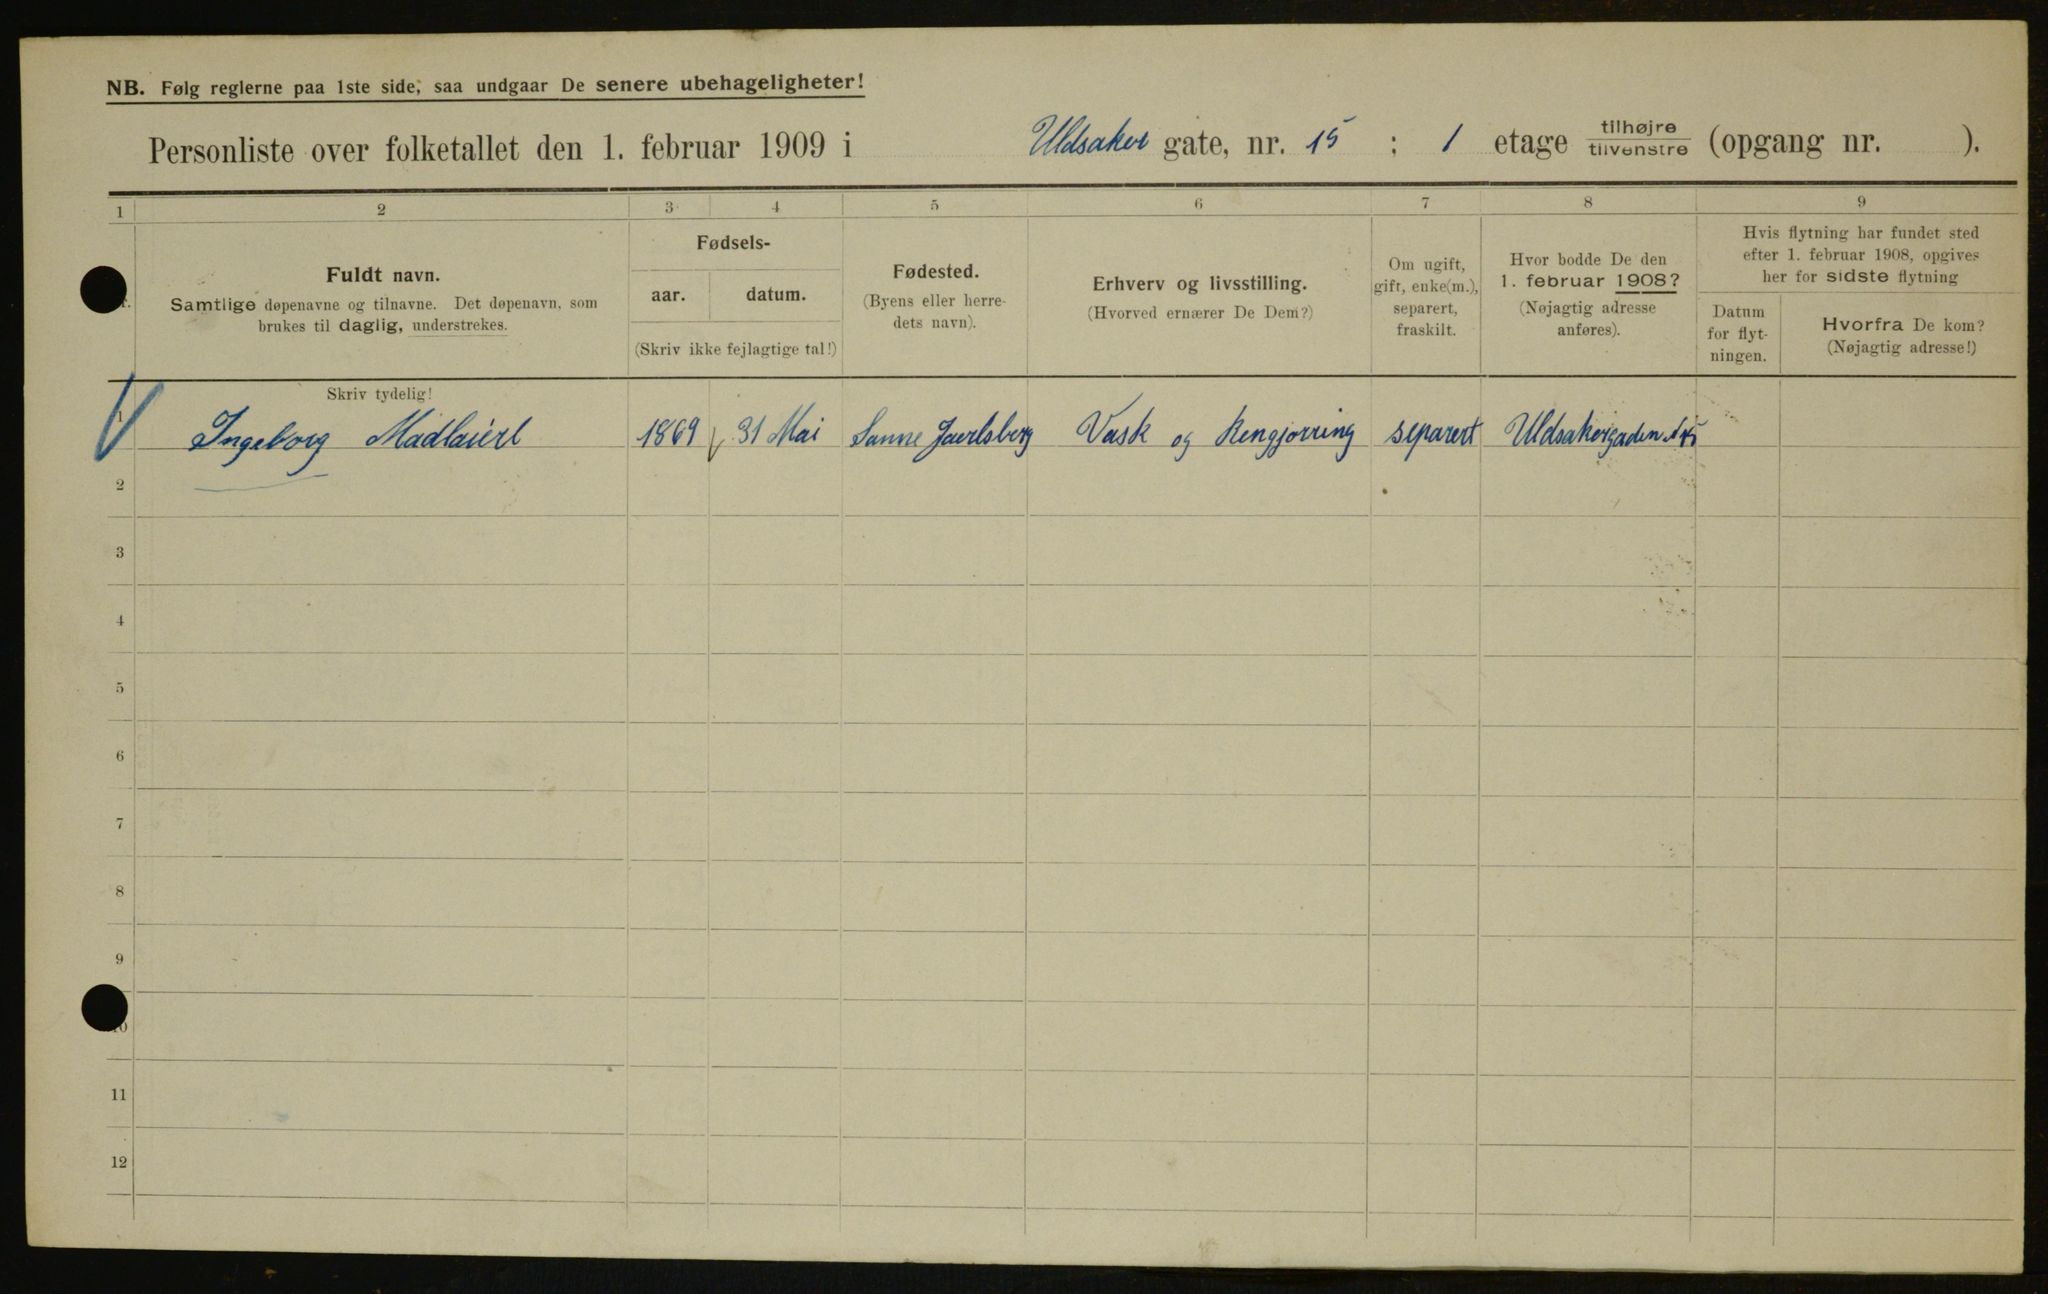 NB. Følg reglerne paa 1ste side, saa undgaar De senere ubehageligheter!
Personliste over folketallet den 1. februar 1909 i Uldsaker gate, nr. 15 ; 1 etage tilhøjre tilvenstre (opgang nr. ).
1 2 3 4 5 6 7 8 9
Fuldt navn.
Samtlige døpenavne og tilnavne. Det døpenavn, som
brukes til daglig, understrekes.
Fødsels-
aar. datum.
(Skriv ikke fejlagtige tal!)
Fødested.
(Byens eller herre-
dets navn).
Erhverv og livsstilling.
(Hvorved ernærer De Dem?)
Om ugift,
gift, enke(m.),
separert,
fraskilt.
Hvor bodde De den
1. februar 1908?
(Nøjagtig adresse
anføres).
Hvis flytning har fundet sted
efter 1. februar 1908, opgives
her for sidste flytning
Datum
for flyt-
ningen.
Hvorfra De kom?
(Nøjagtig adresse!)
Skriv tydelig!
1 Ingeborg 1869 31 Mai Sanne Jaerlsberg Vask og Rengjørring separert Uldsakergaden
2
3
4
5
6
7
8
9
10
11
12